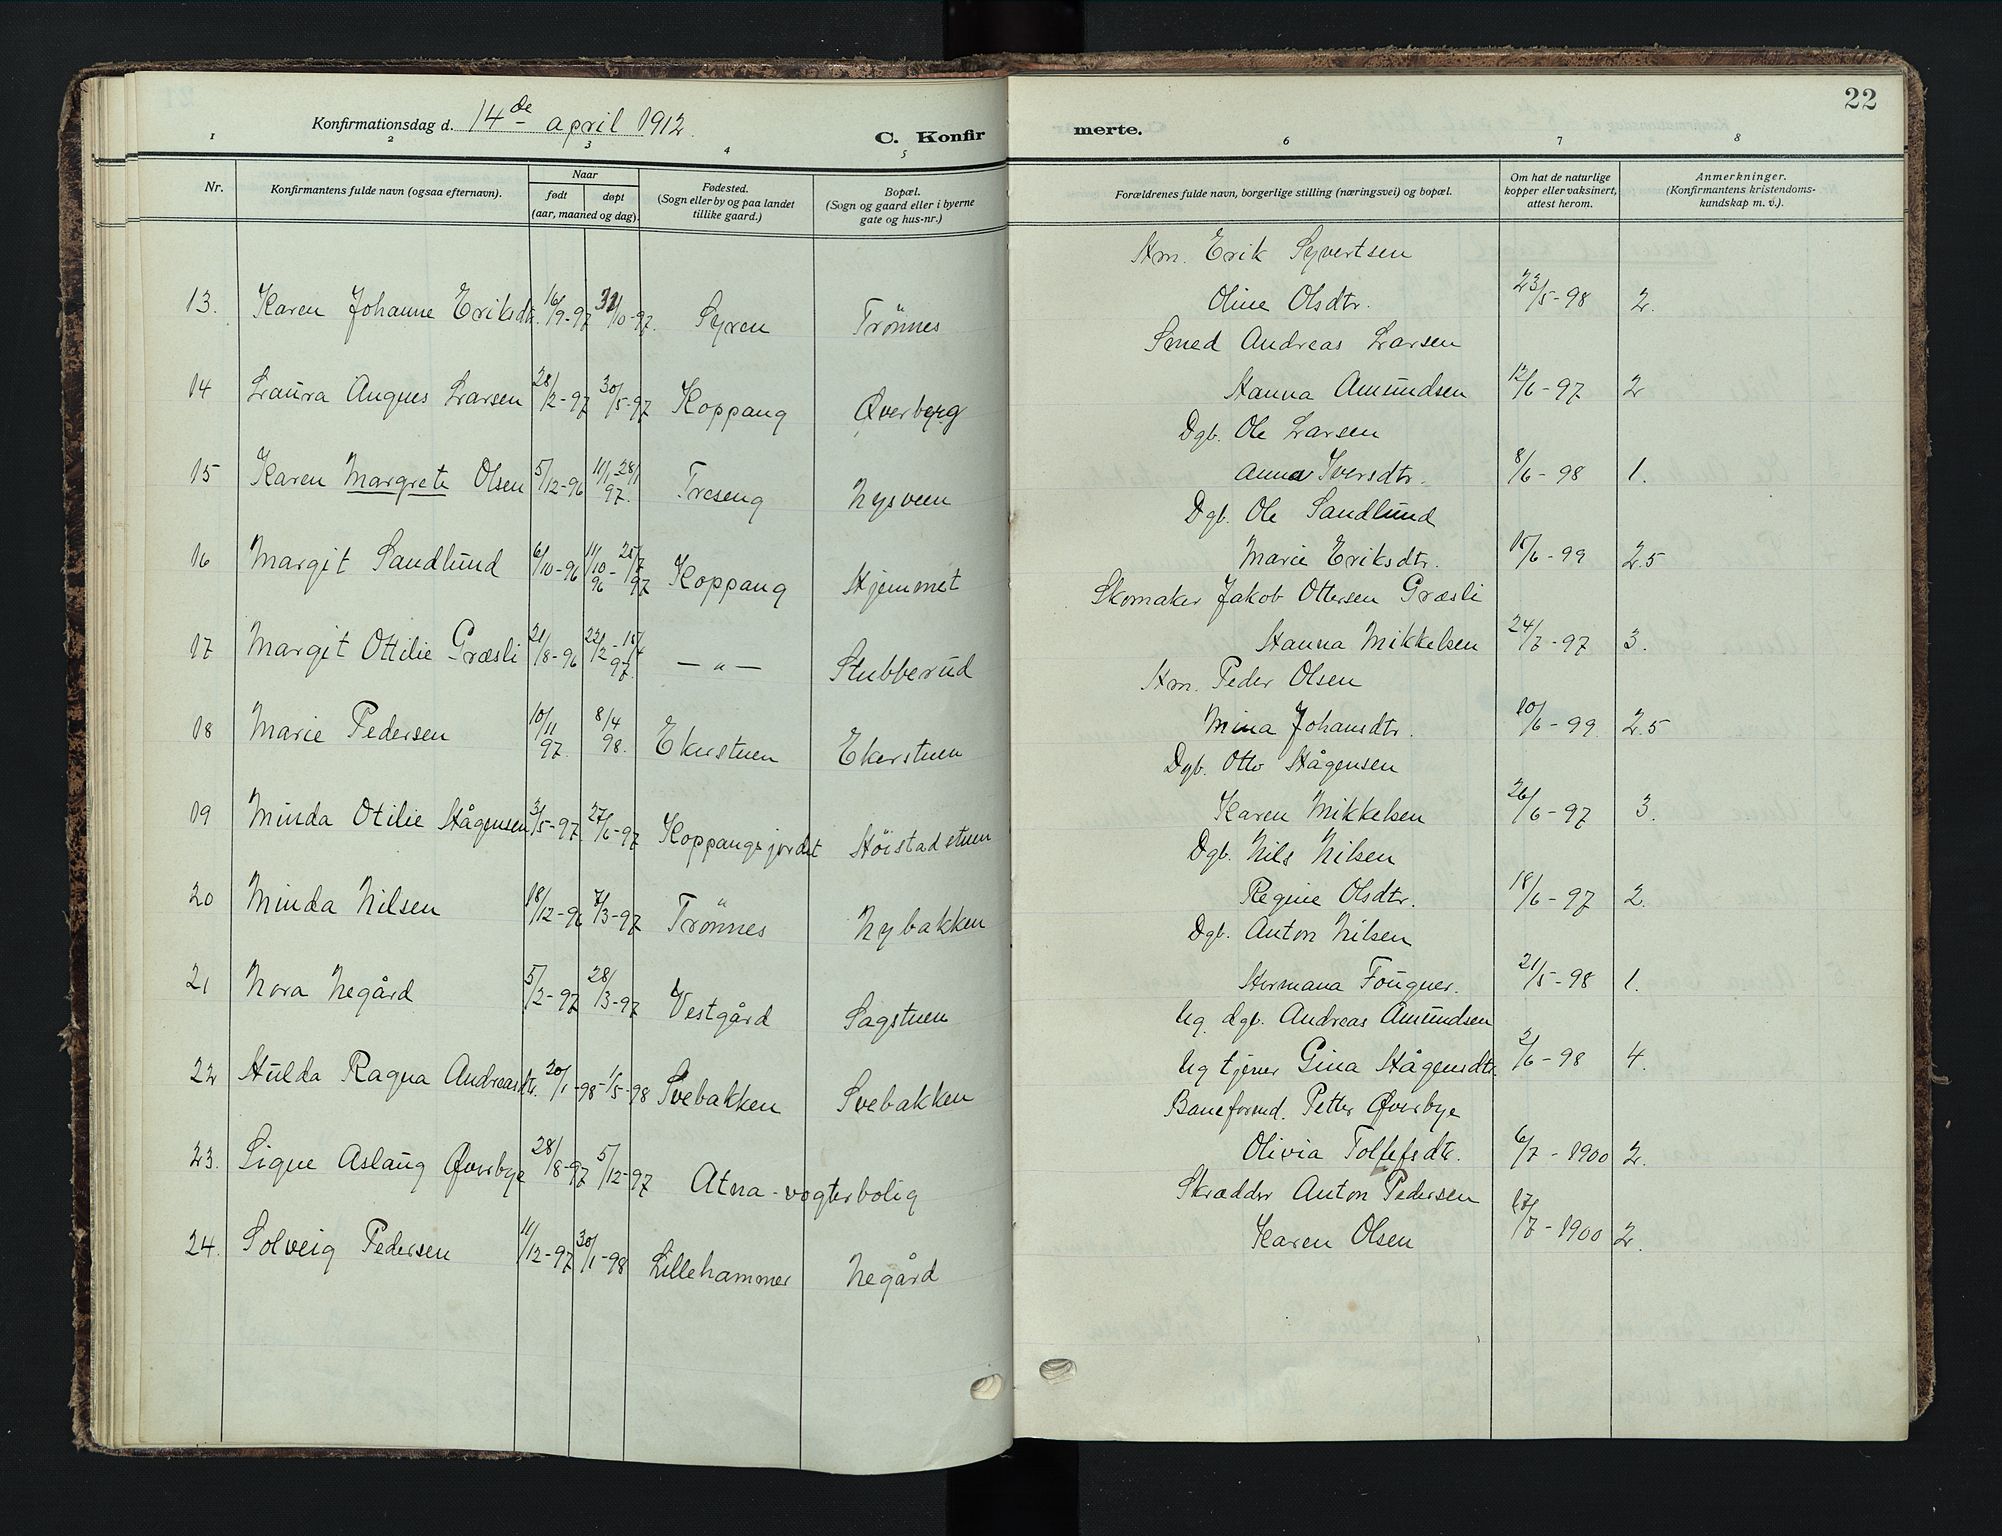 22
Konfirmationsdag d. 14de april 1912.
C. Konfirmerte.
1 2 3 4 5 6 7 8
Nr.
Konfirmantens fulde navn (ogsaa efternavn).
Naar
født
døpt
(aar, maaned og dag).
Fødested.
(Sogn eller by og paa landet
tillike gaard.)
Bopæl.
(Sogn og gaard eller i byerne
gate og hus-nr.)
Forældrenes fulde navn, borgerlige stilling (næringsvei) og bopæl.
Om hat de naturlige
kopper eller vaksinert,
attest herom.
Anmerkninger.
(Konfirmantens kristendoms-
kundskap m. v.).
Hm. Erik Syvertsen
13. Karen Johanne Eriksdtr. 16/9-97 31/10-97. Syren Trönnes Oline Olsdtr. 23/5-98 2.
Smed Andreas Larsen
14 Laura Augnes Larsen 28/2-97 30/5-97 Koppang Øverberg Hanna Amundsen 12/6-97 2
Dgb. Ole Larsen
15 Karen Margrete Olsen 5/12-96 11/1-28/1 97. Treseng Nysveen Anna Iversdtr. 8/6-98 1.
Dgb. Ole Sandlund
16 Margit Sandlund 6/10-96 11/10 96-25/7 97 Koppang Hjemmet Marie Eriksdtr. 15/6-99 2.5
Skomaker Jakob Ottersen Græsli
17 Margit Ottilie Græsli 21/8-96 22/2-15/4 97. — " — Stubberud Hanna Mikkelsen 24/7-97 3.
Hm. Peder Olsen
18 Marie Pedersen 10/11 97. 8/4 98. Ekerstuen Ekerstuen Mina Johansdtr. 20/6-99. 2.5
Dgb. Otto Hågensen
19 Minda Otilie Hågensen 3/5-97. 27/6-97 Koppangsjordet Höistadstuen Karen Mikkelsen 26/6-97 3.
Dgb. Nils Nilsen
20 Minda Nilsen 18/12-96 7/3-97 Trönnes Nybakken Regine Olsdtr. 18/6-97 2.
Dgb. Anton Nilsen
21 Nora Negård 5/2-97 28/3-97 Vestgård Sagstuen Hermana Fougner. 21/5-98 1.
Ug. dgb. Andreas Amundsen
22 Hulda Ragna Andreasdtr. 20/1-98 1/5-98 Svebakken Svebakken Ug tjener Gina Hågensdtr. 2/6-98 4.
Baneformd. Petter Øverbye
23. Signe Aslaug Øverbye 28/8-97 5/12-97 Atna-vogterbolig Olivia Tollefsdtr. 6/7-1900 2.
Skrædder Anton Pedersen
24. Solveig Pedersen 11/12-97 30/1-98 Lillehammer Negård Karen Olsen 17/7-1900 2.